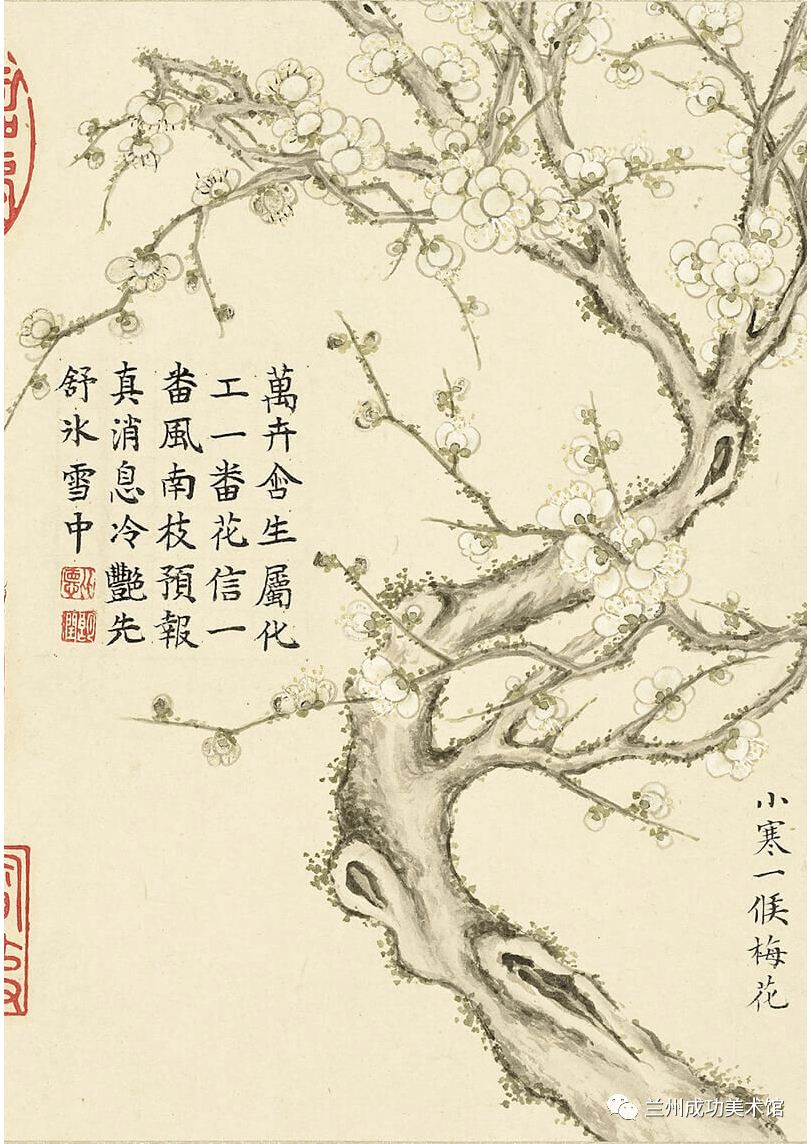 萬卉含生屬化
工一番花信一
番風南枝預報
真消息冷艷先
舒氷雪中
小寒一候梅花
兰州成功美术馆